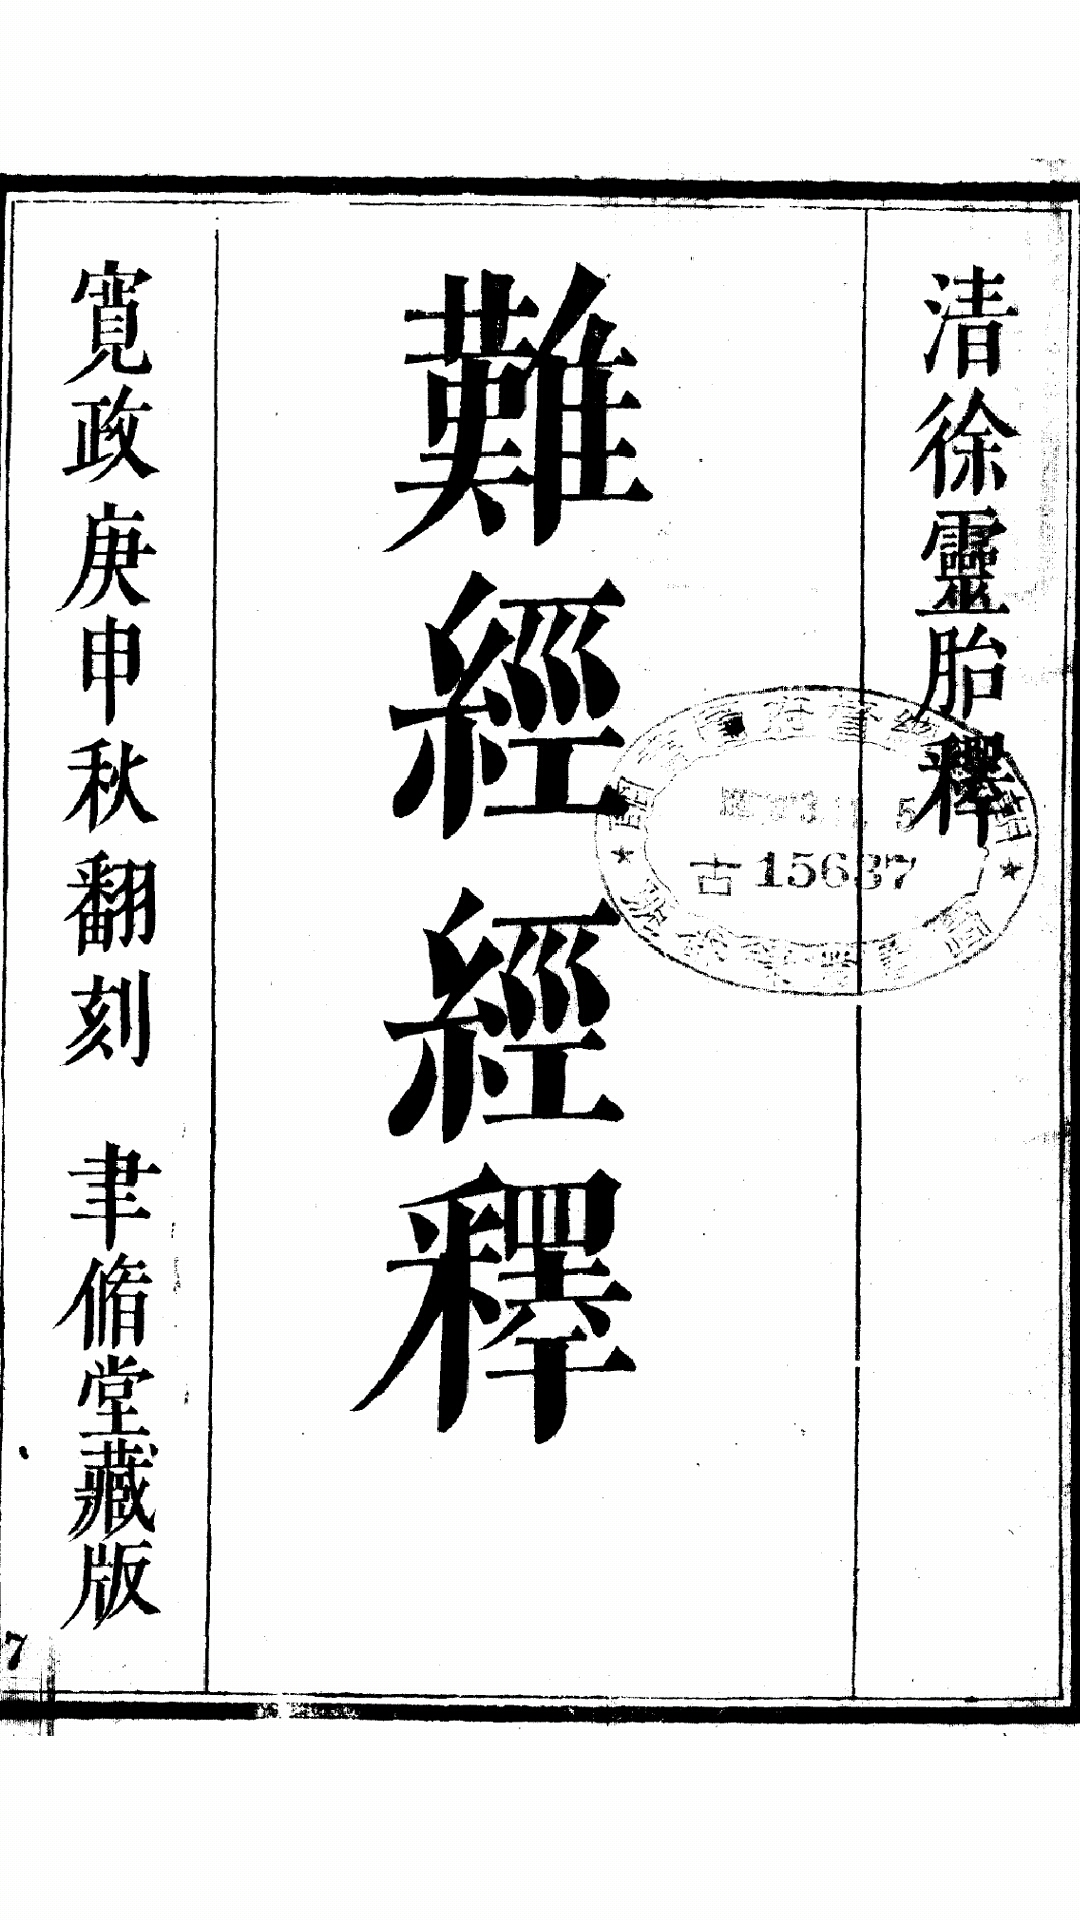 清徐靈胎釋
難經經釋
寬政庚申秋翻刻 聿脩堂藏版
圖書館
古15637
7